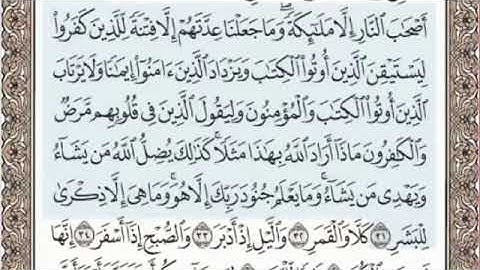 أَصْحَٰبَ ٱلنَّارِ إِلَّا مَلَٰٓئِكَةً ۙ وَمَا جَعَلْنَا عِدَّتَهُمْ إِلَّا فِتْنَةً لِّلَّذِينَ كَفَرُوا۟
لِيَسْتَيْقِنَ ٱلَّذِينَ أُوتُوا۟ ٱلْكِتَٰبَ وَيَزْدَادَ ٱلَّذِينَ ءَامَنُوٓا۟ إِيمَٰنًا وَلَا يَرْتَابَ
ٱلَّذِينَ أُوتُوا۟ ٱلْكِتَٰبَ وَٱلْمُؤْمِنُونَ وَلِيَقُولَ ٱلَّذِينَ فِى قُلُوبِهِم مَّرَضٌ
وَٱلْكَٰفِرُونَ مَاذَآ أَرَادَ ٱللَّهُ بِهَٰذَا مَثَلًا ۚ كَذَٰلِكَ يُضِلُّ ٱللَّهُ مَن يَشَآءُ
وَيَهْدِى مَن يَشَآءُ ۚ وَمَا يَعْلَمُ جُنُودَ رَبِّكَ إِلَّا هُوَ ۚ وَمَا هِىَ إِلَّا ذِكْرَىٰ
لِلْبَشَرِ ٣١ كَلَّا وَٱلْقَمَرِ ٣٢ وَٱلَّيْلِ إِذْ أَدْبَرَ ٣٣ وَٱلصُّبْحِ إِذَآ أَسْفَرَ ٣٤ إِنَّهَا